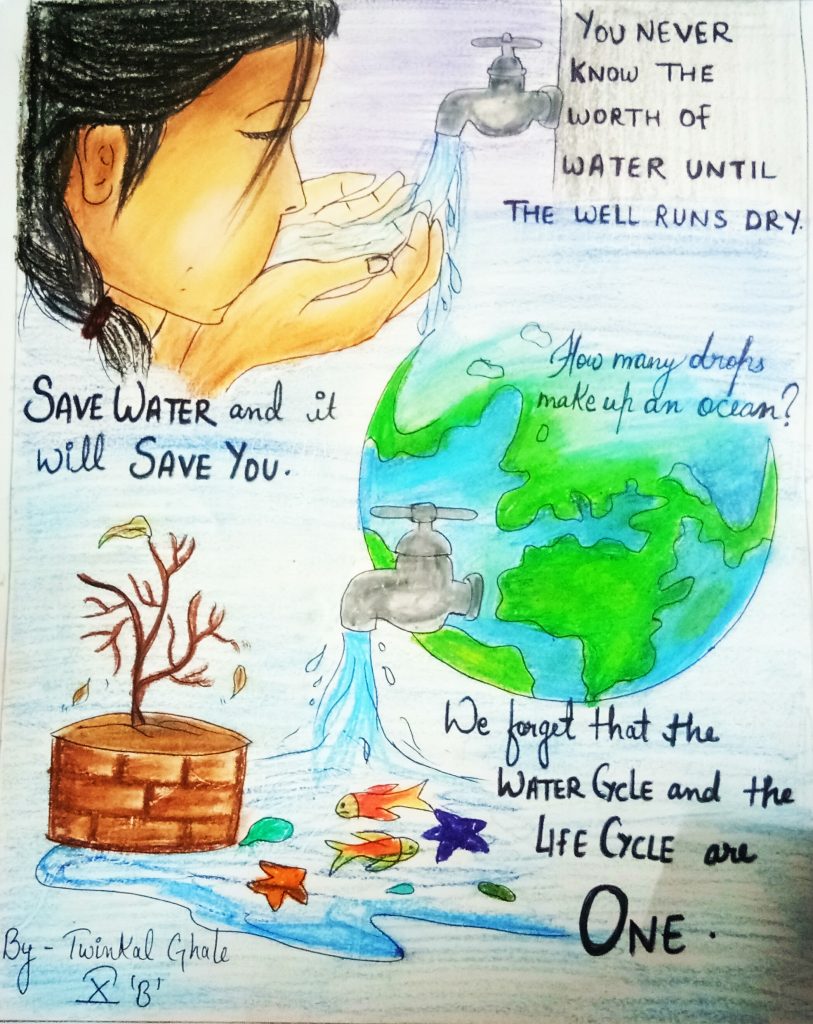 YOU NEVER
KNOW THE
WORTH OF
WATER UNTIL
THE WELL RUNS DRY.
How many drops
make up an ocean?
SAVE WATER and it
will SAVE YOU.
We forget that the
WATER CYCLE and the
LIFE CYCLE are
ONE.
By - Twinkal Ghate
X 'B'